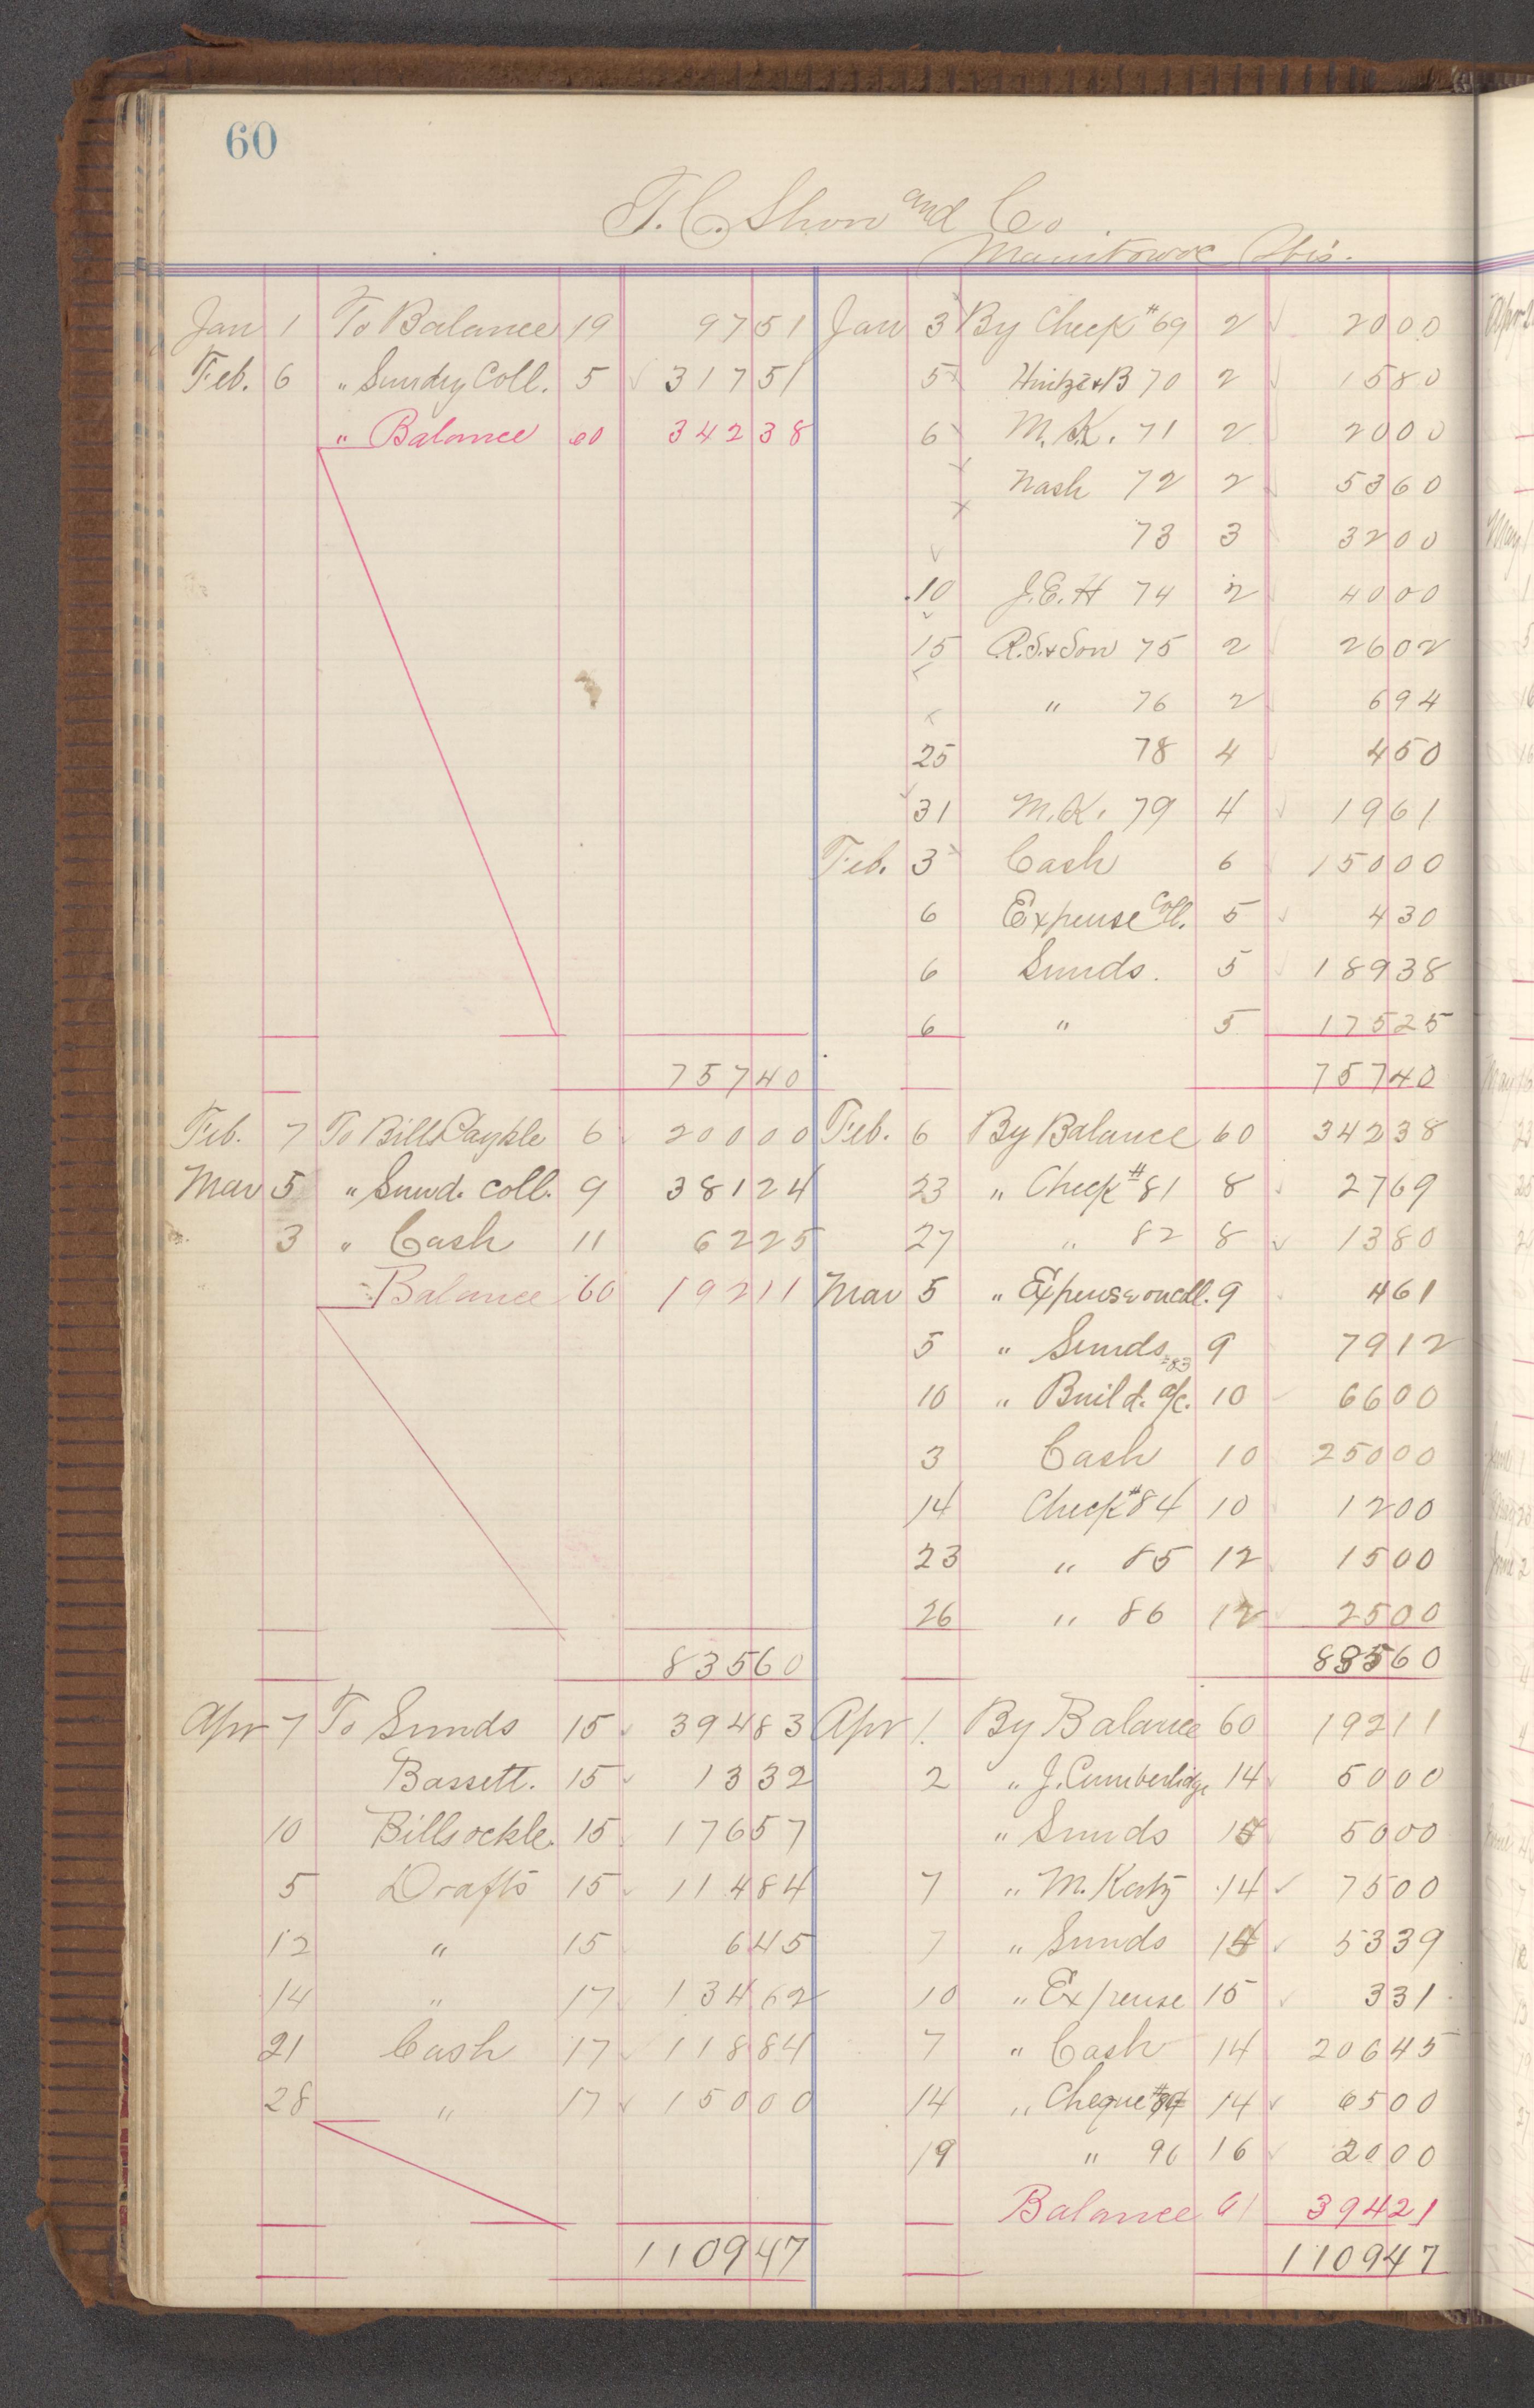 60
T. C. Shove and Co
Manitowoc Wis.
Jan 1 To Balance 19 97 51 Jan 3 By Check #69 2 20 00
Feb. 6 " Sundry Coll. 5 317 51 5 Hintze & B 70 2 15 80
" Balance 60 342 38 6 M.K. 71 2 20 00
Nash 72 2 53 60
73 3 32 00
10 J.E.H 74 2 40 00
15 R.S. & Son 75 2 26 02
" 76 2 6 94
25 78 4 4 50
31 M.K. 79 4 19 61
Feb. 3 Cash 6 150 00
6 Expense Coll. 5 4 30
6 Sunds. 5 189 38
6 " 5 175 25
757 40 757 40
Feb. 7 To Bills Payble 6 200 00 Feb. 6 By Balance 60 342 38
Mar 5 " Sund. Coll. 9 381 24 23 " Check # 81 8 27 69
3 " Cash 11 62 25 27 " 82 8 13 80
Balance 60 192 11 Mar 5 " Expense on coll. 9 4 61
5 " Sunds #83 9 79 12
10 " Build. a/c. 10 66 00
3 Cash 10 250 00
14 Check #84 10 12 00
23 " 85 12 15 00
26 " 86 12 25 00
835 60 835 60
Apr 7 To Sunds 15 394 83 Apr 1 By Balance 60 192 11
Bassett. 15 13 32 2 " J. Cumberlidge 14 50 00
10 Bills 15 176 57 " Sunds 15 50 00
5 Drafts 15 114 84 7 " M. Katz 14 75 00
12 " 15 6 45 7 " Sunds 53 39
14 " 17 134 62 10 " Expense 15 3 31
21 Cash 17 118 84 7 " Cash 14 206 45
28 " 17 150 00 14 " Cheque # 14 65 00
19 " 96 16 20 00
Balance 61 394 21
1109 47 1109 47